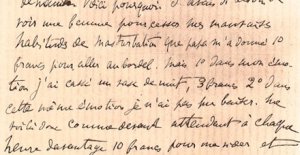 demander. Voici pourquoi. J'avais si besoin de
voir une femme pour cesser mes mauvaises
habitudes de masturbation que papa m'a donné 10
francs pour aller au bordel. Mais 1° dans mon émo-
tion j'ai cassé un vase de nuit, 3 francs 2° dans
cette même émotion je n'ai pas pu baiser. Me
voilà donc comme devant attendant à chaque
heure davantage 10 francs pour me vider et